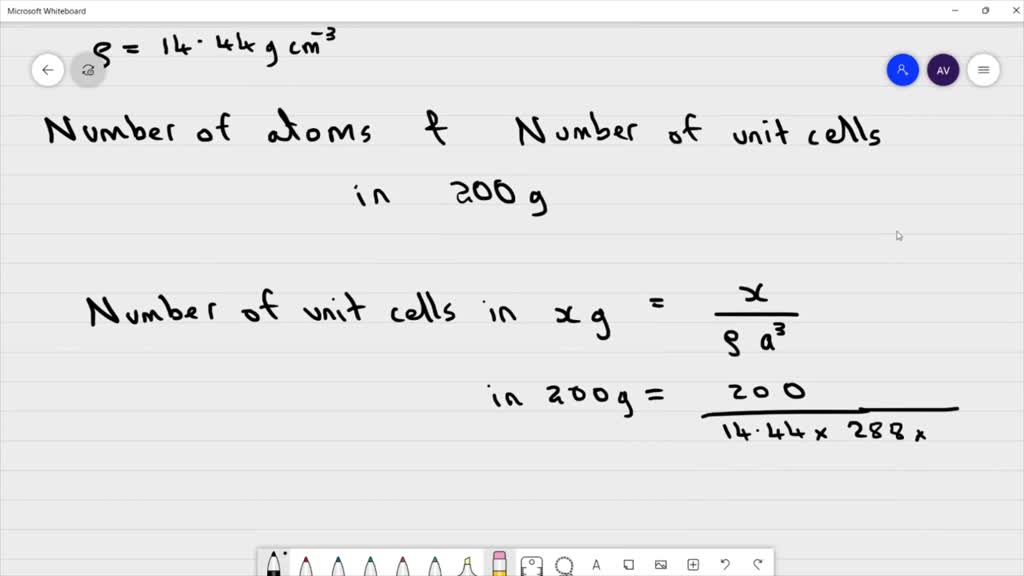 Microsoft Whiteboard
ρ = 14.44 g cm⁻³
AV
Number of atoms & Number of unit cells
in 200 g
Number of unit cells in x g = x / ρ a³
in 200 g = 200 / 14.44 × 288 ×
A